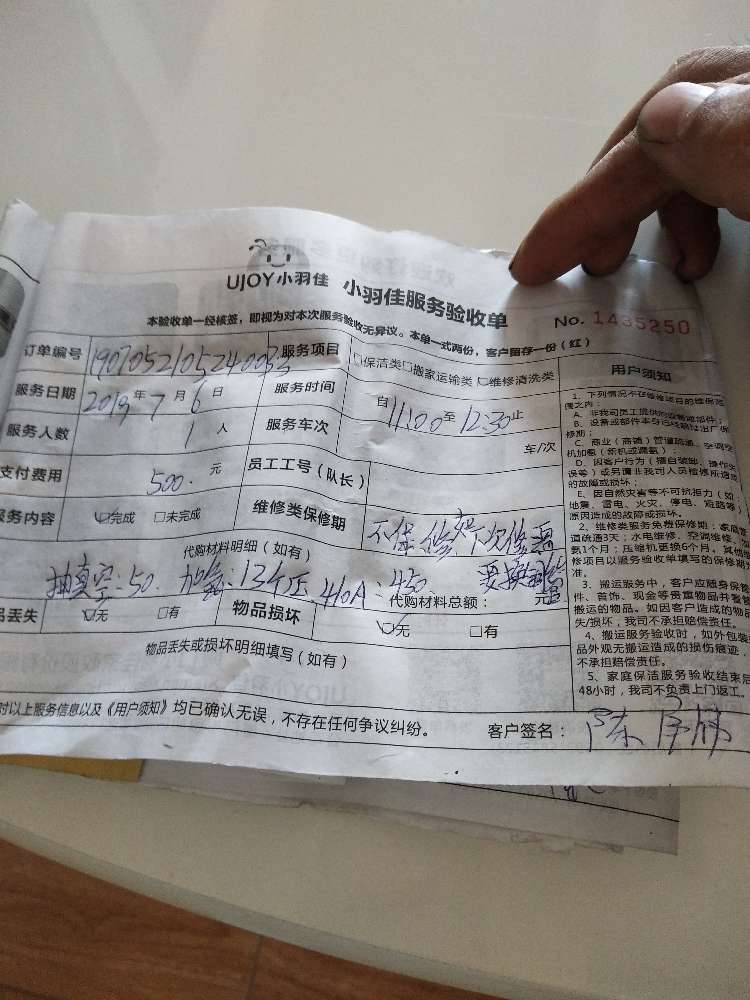 UJOY小羽佳 小羽佳服务验收单
本验收单一经核签，即视为对本次服务验收无异议。本单一式两份，客户留存一份（红）
No. 1435250
订单编号 1907052105240033 服务项目 □保洁类□搬家运输类□维修清洗类
服务日期 2019年7月6日 服务时间 自11:00至12:30止
服务人数 1人 服务车次 车/次
支付费用 500.元 员工工号（队长）
服务内容 ☑完成 □未完成 维修类保修期 不保修
代购材料明细（如有）
抽真空:50. 加氟:13个压.410A:450.
代购材料总额： 元
品丢失 ☑无 □有 物品损坏 ☑无 □有
物品丢失或损坏明细填写（如有）
对以上服务信息以及《用户须知》均已确认无误，不存在任何争议纠纷。 客户签名：陈
用户须知
1、下列情况不存维修项目的维保范
围之内：
A、非我司员工提供的设备或部件；
B、设备或部件本身已经超过出厂保
修期；
C、商业（商铺）管道疏通、空调空
机加氨（新机或漏氨）
D、因客户行为（擅自装缷、操作失
误等）或另请非我司人员检修所造成
的故障或损坏；
E、因自然灾害等不可抗拒力（如：
地震、雷电、火灾、停电、短路等）
原因造成的故障或损坏。
2、维修类服务免费保修期：家庭管
道疏通3天；水电维修、空调维修、加
氨1个月；压缩机更换6个月，其他维
修项目以服务验收单填写的保修期为
准。
3、搬运服务中，客户应随身保
件、首饰、现金等贵重物品并看管
搬运的物品。如因客户造成的物品
失/损坏，我司不承担赔偿责任。
4、搬运服务验收时，如外包装
品外观无搬运造成的损伤痕迹，
不承担赔偿责任。
5、家庭保洁服务验收结束后
48小时，我司不负责上门返工。